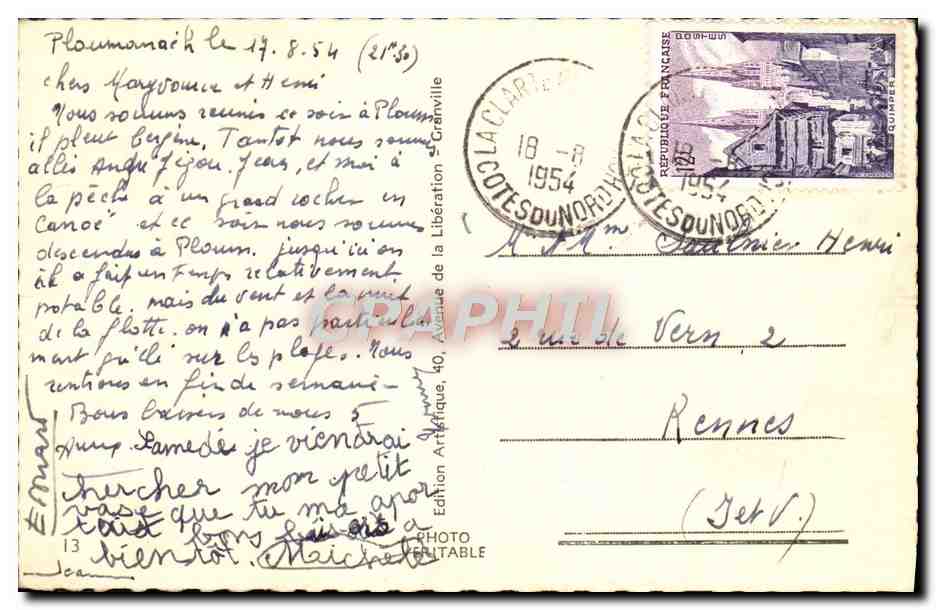 Ploumanach le 17.8.54 (21h30)
chers Maryvonne et Henri
Nous sommes reunis ce soir à Ploum
il pleut bergère. Tantot nous sommes
allés André Jean, et moi à
la pêche à un grand rocher en
Canoé et ce soir nous sommes
descendus à Ploum. jusqu'ici on
il a fait un temps relativement
potable. mais du vent et la nuit
de la flotte. on n'a pas particulie
ment grillé sur les plages. Nous
rentrons en fin de semaine
Bons baisers de nous 5
Samedi je viendrai
chercher mon petit
vase que tu ma apor
taid bons baisers a
bientôt. Meichele
13
Jean
Edition Artistique, 40, Avenue de la Libération - Granville
PHOTO
VERITABLE
LA CLARTE
18 -8
1954
COTES DU NORD
LA CLARTE
18 -8
1954
COTES DU NORD
RÉPUBLIQUE FRANÇAISE
POSTES
12F
QUIMPER
M & Mme Saulnier Henri
2 rue de Vern, 2
Rennes
(I et V.)
CPAPHIL